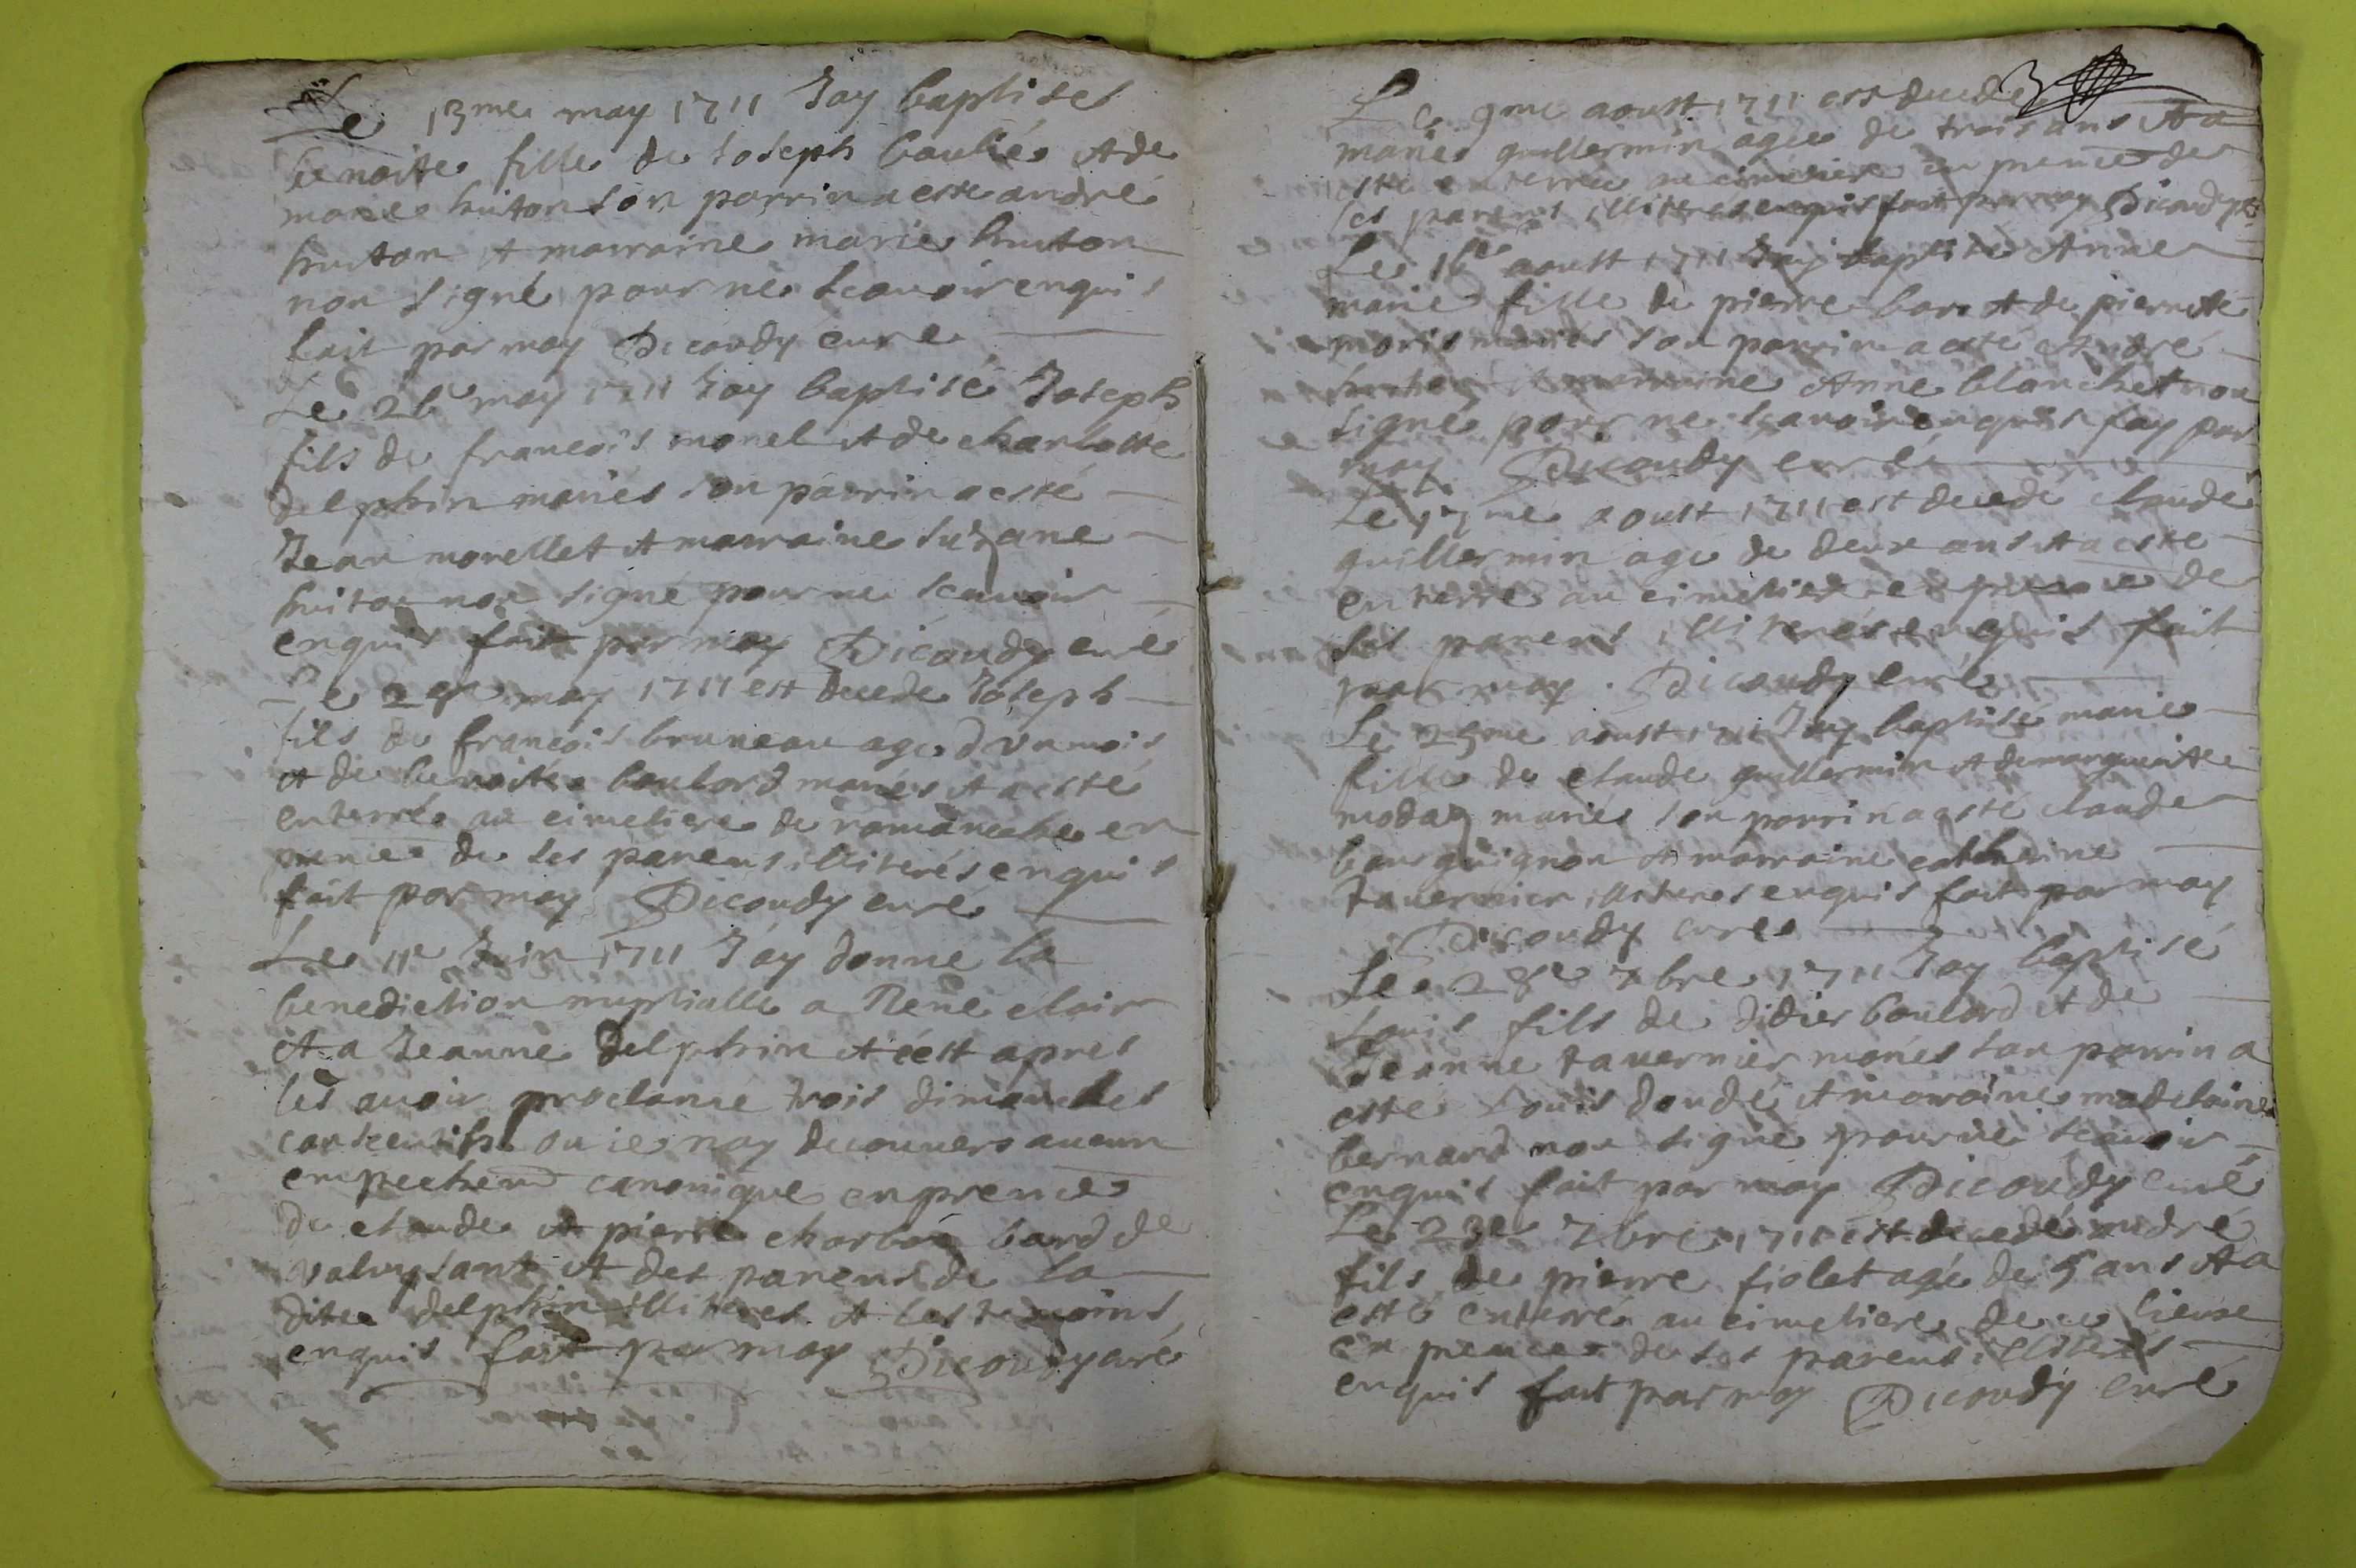 Le 13me may 1711 Jay baptisé
benoite fille de Joseph et de
marie huiton son parrin a esté andré
huiton et marraine marie huiton
non signé pour ne scauoir enquis
fait par moy Dicoudy curé
Le may 1711 Jay baptisé Joseph
fils de francois morel et de charlotte
delphin mariés son parrin a esté
Jean morellet et marraine suzane
huiton non signé pour ne scauoir
enquis fait par moy Dicoudy curé
Le may 1711 est decede Joseph
fils de francois bruneau age d'un mois
et de benoite boulord mariés et a esté
enterré au cimetiere de romaneche en
prence de ses parens illiterés enquis
fait par moy Dicoudy curé
Le 11e Juin 1711 Jay donné la
benediction nuptialle a René clair
et a Jeanne delphin et cest apres
les auoir proclamé trois dimanches
ou ie nay decouuers aucun
empechemt canonique en prence
de claude et pierre bard de
et des parens de la
dite delphin illiteres et les temoins
enquis fait par moy Dicoudy curé
3
Le 9me aoust 1711 est decedé
marie guillermin agée de trois ans et a
esté enterrée au cimetiere en prence de
ses parens illiteres enquis fait par moy Dicoudy
Le 16e aoust 1711 Jay baptisé Anne
marie fille de pierre et de pierrette
moris mariés son parrin a esté André
et marraine Anne blanchet non
signé pour ne scauoir enquis fay par
moy Dicoudy curé
Le 17me aoust 1711 est decedé claude
guillermin age de deux ans et a esté
enterré au cimetiere en prence de
ses parens illiterés enquis fait
par moy Dicoudy curé
Le 25me aoust 1711 Jay baptisé marie
fille de claude guillermin et de marguerite
modas mariés son parrin a esté claude
bourguignon et marraine catherine
tauernier illiteres enquis fait par moy
Dicoudy curé
Le 28e 7bre 1711 Jay baptisé
Louis fils de didier boulord et de
Jeanne tauernier mariés son parrin a
esté Louis doudé et marraine madelaine
bernard non signé pour ne scauoir
enquis fait par moy Dicoudy curé
Le 7bre 1711 est decedé andré
fils de pierre fiolet agé de 5 ans et a
esté enterré au cimetiere de ce lieu
en prence de ses parens illiterés
enquis fait par moy Dicoudy curé